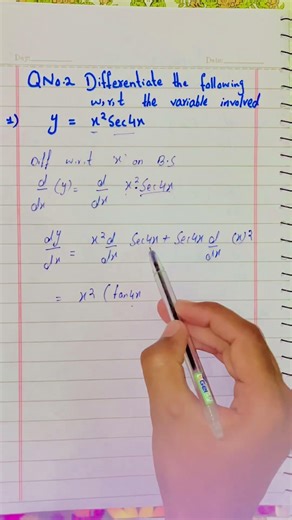 Q No.2 Differentiate the following
w.r.t the variable involved
y = x² Sec4x
Diff w.r.t 'x' on B.S
d/dx (y) = d/dx x². Sec4x
dy/dx = x² d/dx Sec4x + Sec4x d/dx (x)²
= x² (tan4x